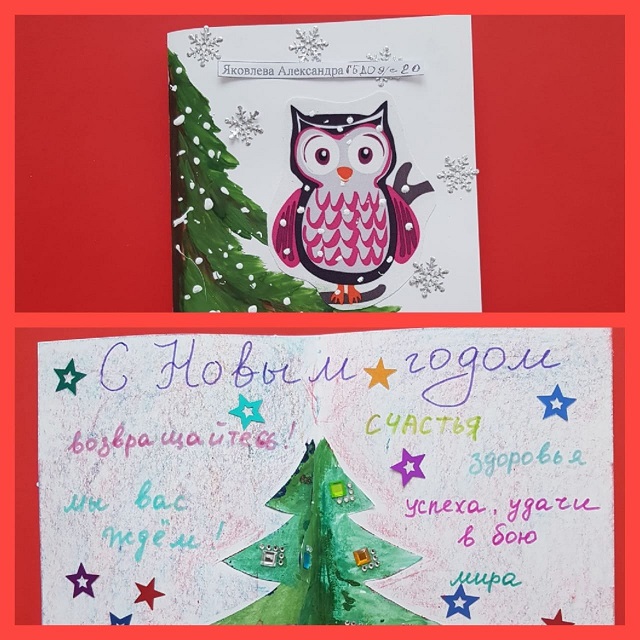 Яковлева Александра ГБДОУ-20
С Новым годом
возвращайтесь!
мы вас
ждём!
СЧАСТЬЯ
здоровья
успеха, удачи
в бою
мира